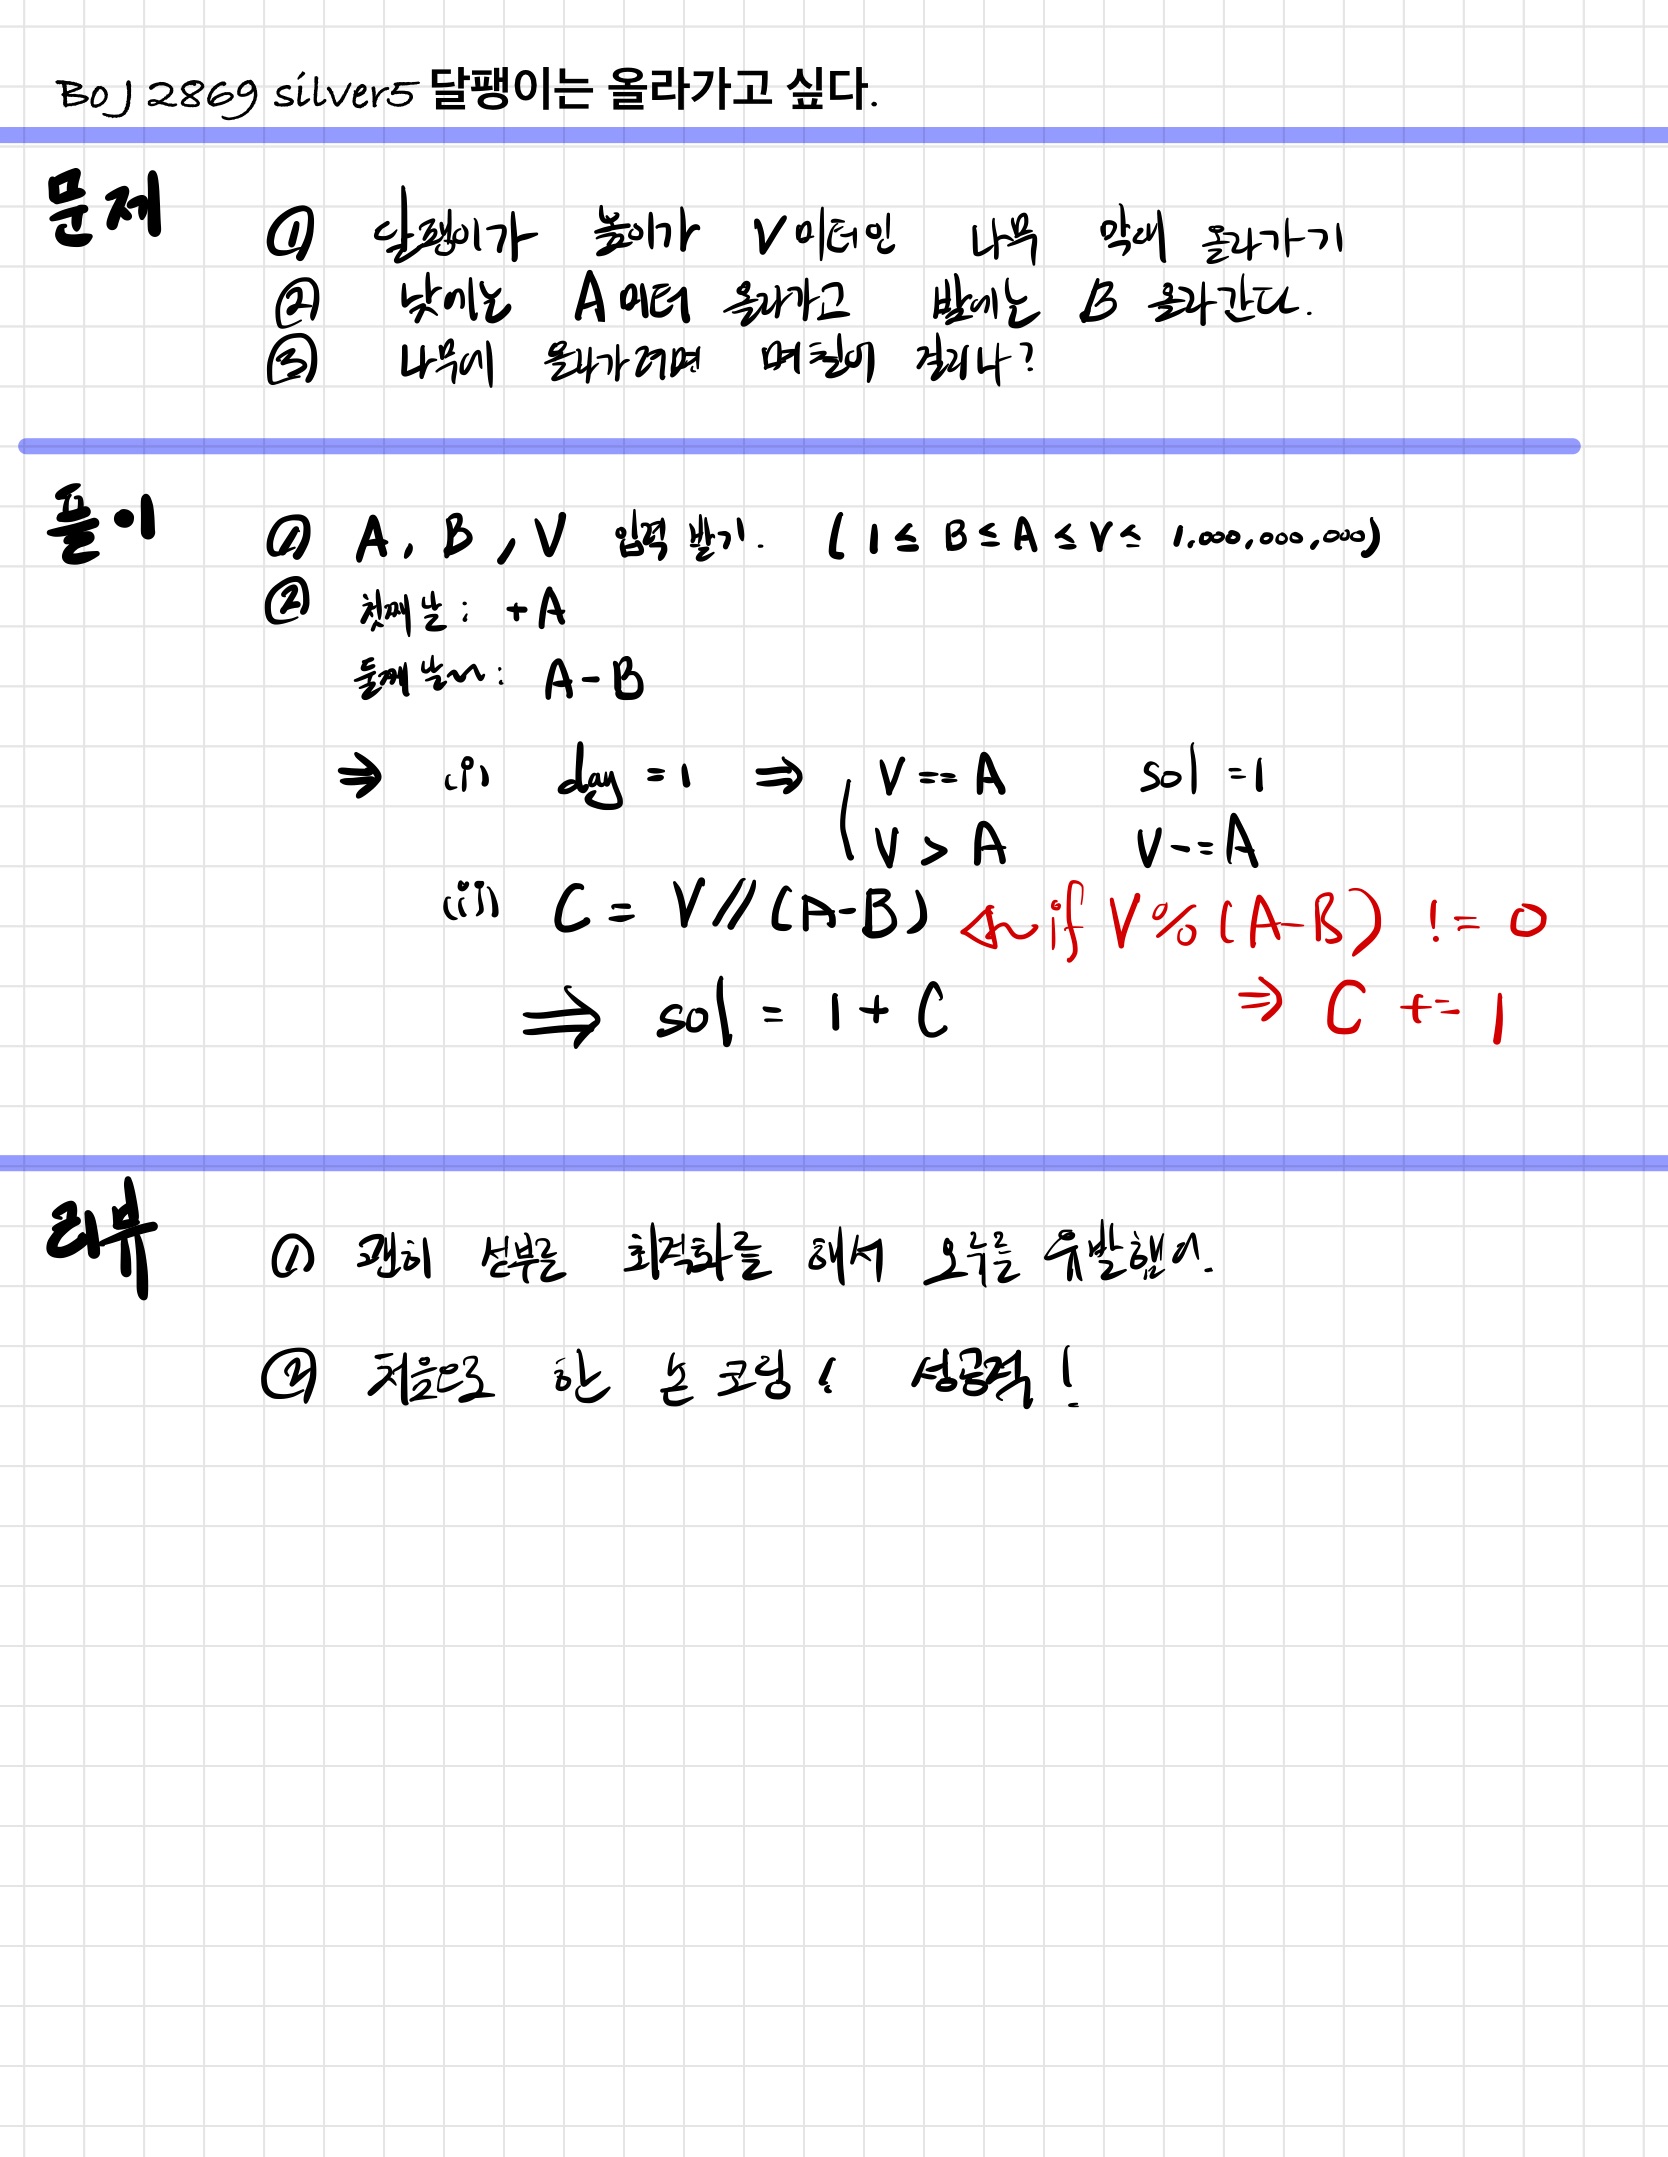 BOJ 2869 silver5 달팽이는 올라가고 싶다.
문제
① 달팽이가 높이가 V미터인 나무 막대 올라가기
② 낮에는 A미터 올라가고 밤에는 B 올라간다.
③ 나무에 올라가려면 며칠이 걸리나?
풀이
① A, B, V 입력 받기. (1 ≤ B ≤ A ≤ V ≤ 1,000,000,000)
② 첫째 날 : +A
둘째 날~ : A-B
⇒ (i) day = 1 ⇒ V == A sol = 1
V > A V -= A
(ii) C = V//(A-B) if V%(A-B) != 0
⇒ sol = 1 + C ⇒ C += 1
리뷰
① 괜히 섣부른 최적화를 해서 오류를 유발했어.
② 처음으로 한 손 코딩! 성공적!